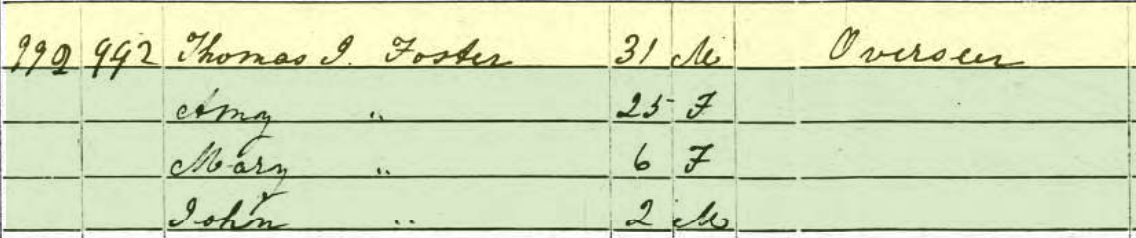 992 992 Thomas J. Foster 31 M Overseer
Amy " 25 F
Mary " 6 F
John " 2 M